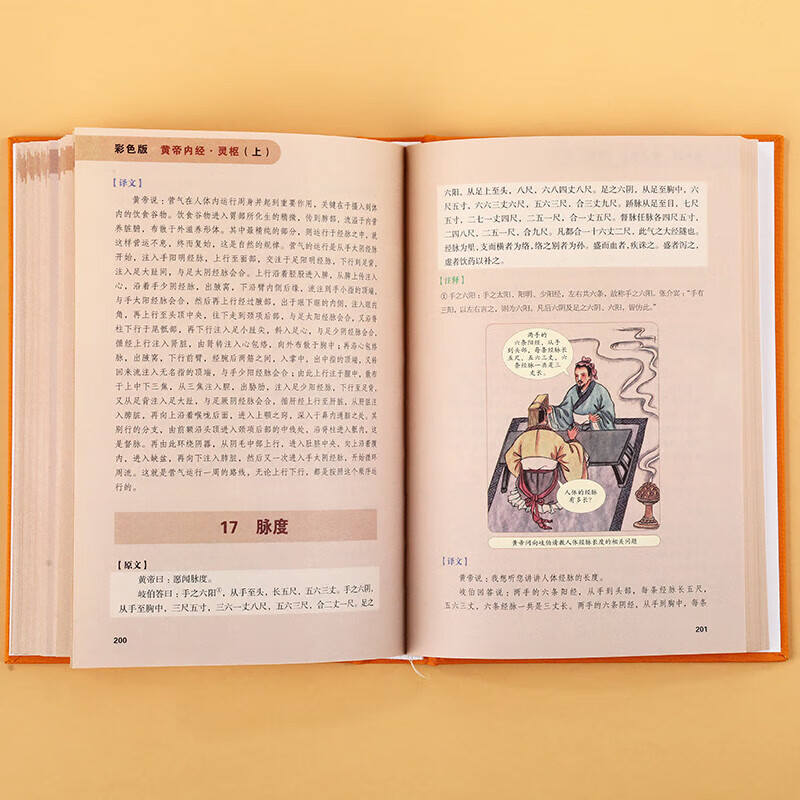 彩色版 黄帝内经·灵枢(上)
【译文】
黄帝说：营气在人体内运行周身并起到重要作用，关键在于摄入到体
内的饮食谷物。饮食谷物进入胃部所化生的精微，传到肺部，流溢于内营
养脏腑，布散于外滋养形体。其中最精纯的部分，则运行于经脉之中，就
这样营运不息，终而复始，这是自然的规律。营气的运行是从手太阴经脉
开始，注入手阳明经脉，上行至面部，交注于足阳明经脉，下行到足背，
注入足大趾间，与足太阴经脉会合。上行沿着胫股进入脾，从脾上传注入
心，沿着手少阴经脉，出腋窝，下沿臂内侧后缘，流注到手小指的指端，
与手太阳经脉会合，然后再上行经过腋部，出于眼下眶的内侧，注入眼内
角，再上行至头顶中央，往下走到颈项后部，与足太阳经脉会合，又沿脊
柱下行于尾骶部，再下行注入足小趾尖，斜入足心，与足少阴经脉会合，
循经上行注入肾脏，由肾转注入心包络，向外布散于胸中；再沿心包络
脉，出腋窝，下行前臂，经腕后两筋之间，入掌中，出中指的指端，又转
回来流注无名指的指端，与手少阳经脉会合；由此上行注于膻中，散布
于上中下三焦，从三焦注入胆，出胁肋，注入足少阳经脉，下行至足背，
又从足背注入足大趾，与足厥阴经脉会合，循肝经上行至肝脏，从肝脏注
入肺脏，再向上沿着喉咙后面，进入上颚之窍，深入于鼻内通脑之处，其
别行的分支，由前额沿头顶进入颈项后部的中线处，沿脊柱进入骶内，这
是督脉。再由此环绕阴器，从阴毛中部上行，进入肚脐中央，向上沿着腹
内，进入缺盆，再向下注入肺脏，然后又一次进入手太阴经脉，开始循环
周流。这就是营气运行一周的路线，无论上行下行，都是按照这个顺序运
行的。
17 脉度
【原文】
黄帝曰：愿闻脉度。
岐伯答曰：手之六阳①，从手至头，长五尺，五六三丈。手之六阴，
从手至胸中，三尺五寸，三六一丈八尺，五六三尺，合二丈一尺。足之
200
六阳，从足上至头，八尺，六八四丈八尺。足之六阴，从足至胸中，六
尺五寸，六六三丈六尺，五六三尺，合三丈九尺。跷脉从足至目，七尺
五寸，二七一丈四尺，二五一尺，合一丈五尺。督脉任脉各四尺五寸，
二四八尺，二五一尺，合九尺。凡都合一十六丈二尺，此气之大经隧也。
经脉为里，支而横者为络，络之别者为孙。盛而血者，疾诛之。盛者泻之，
虚者饮药以补之。
【注释】
①手之六阳：手之太阳、阳明、少阳经，左右共六条，故称手之六阳。张介宾：“手有
三阳，以左右言之，则为六阳。凡后六阴及足之六阴、六阳，皆仿此。”
两手的
六条阳经，从手
到头部，每条经脉长
五尺，五六三丈，六
条经脉一共是三
丈长。
人体的经脉
有多长？
黄帝问向岐伯请教人体经脉长度的相关问题
【译文】
黄帝说：我想听您讲讲人体经脉的长度。
岐伯回答说：两手的六条阳经，从手到头部，每条经脉长五尺，
五六三丈，六条经脉一共是三丈长。两手的六条阴经，从手到胸中，每条
201